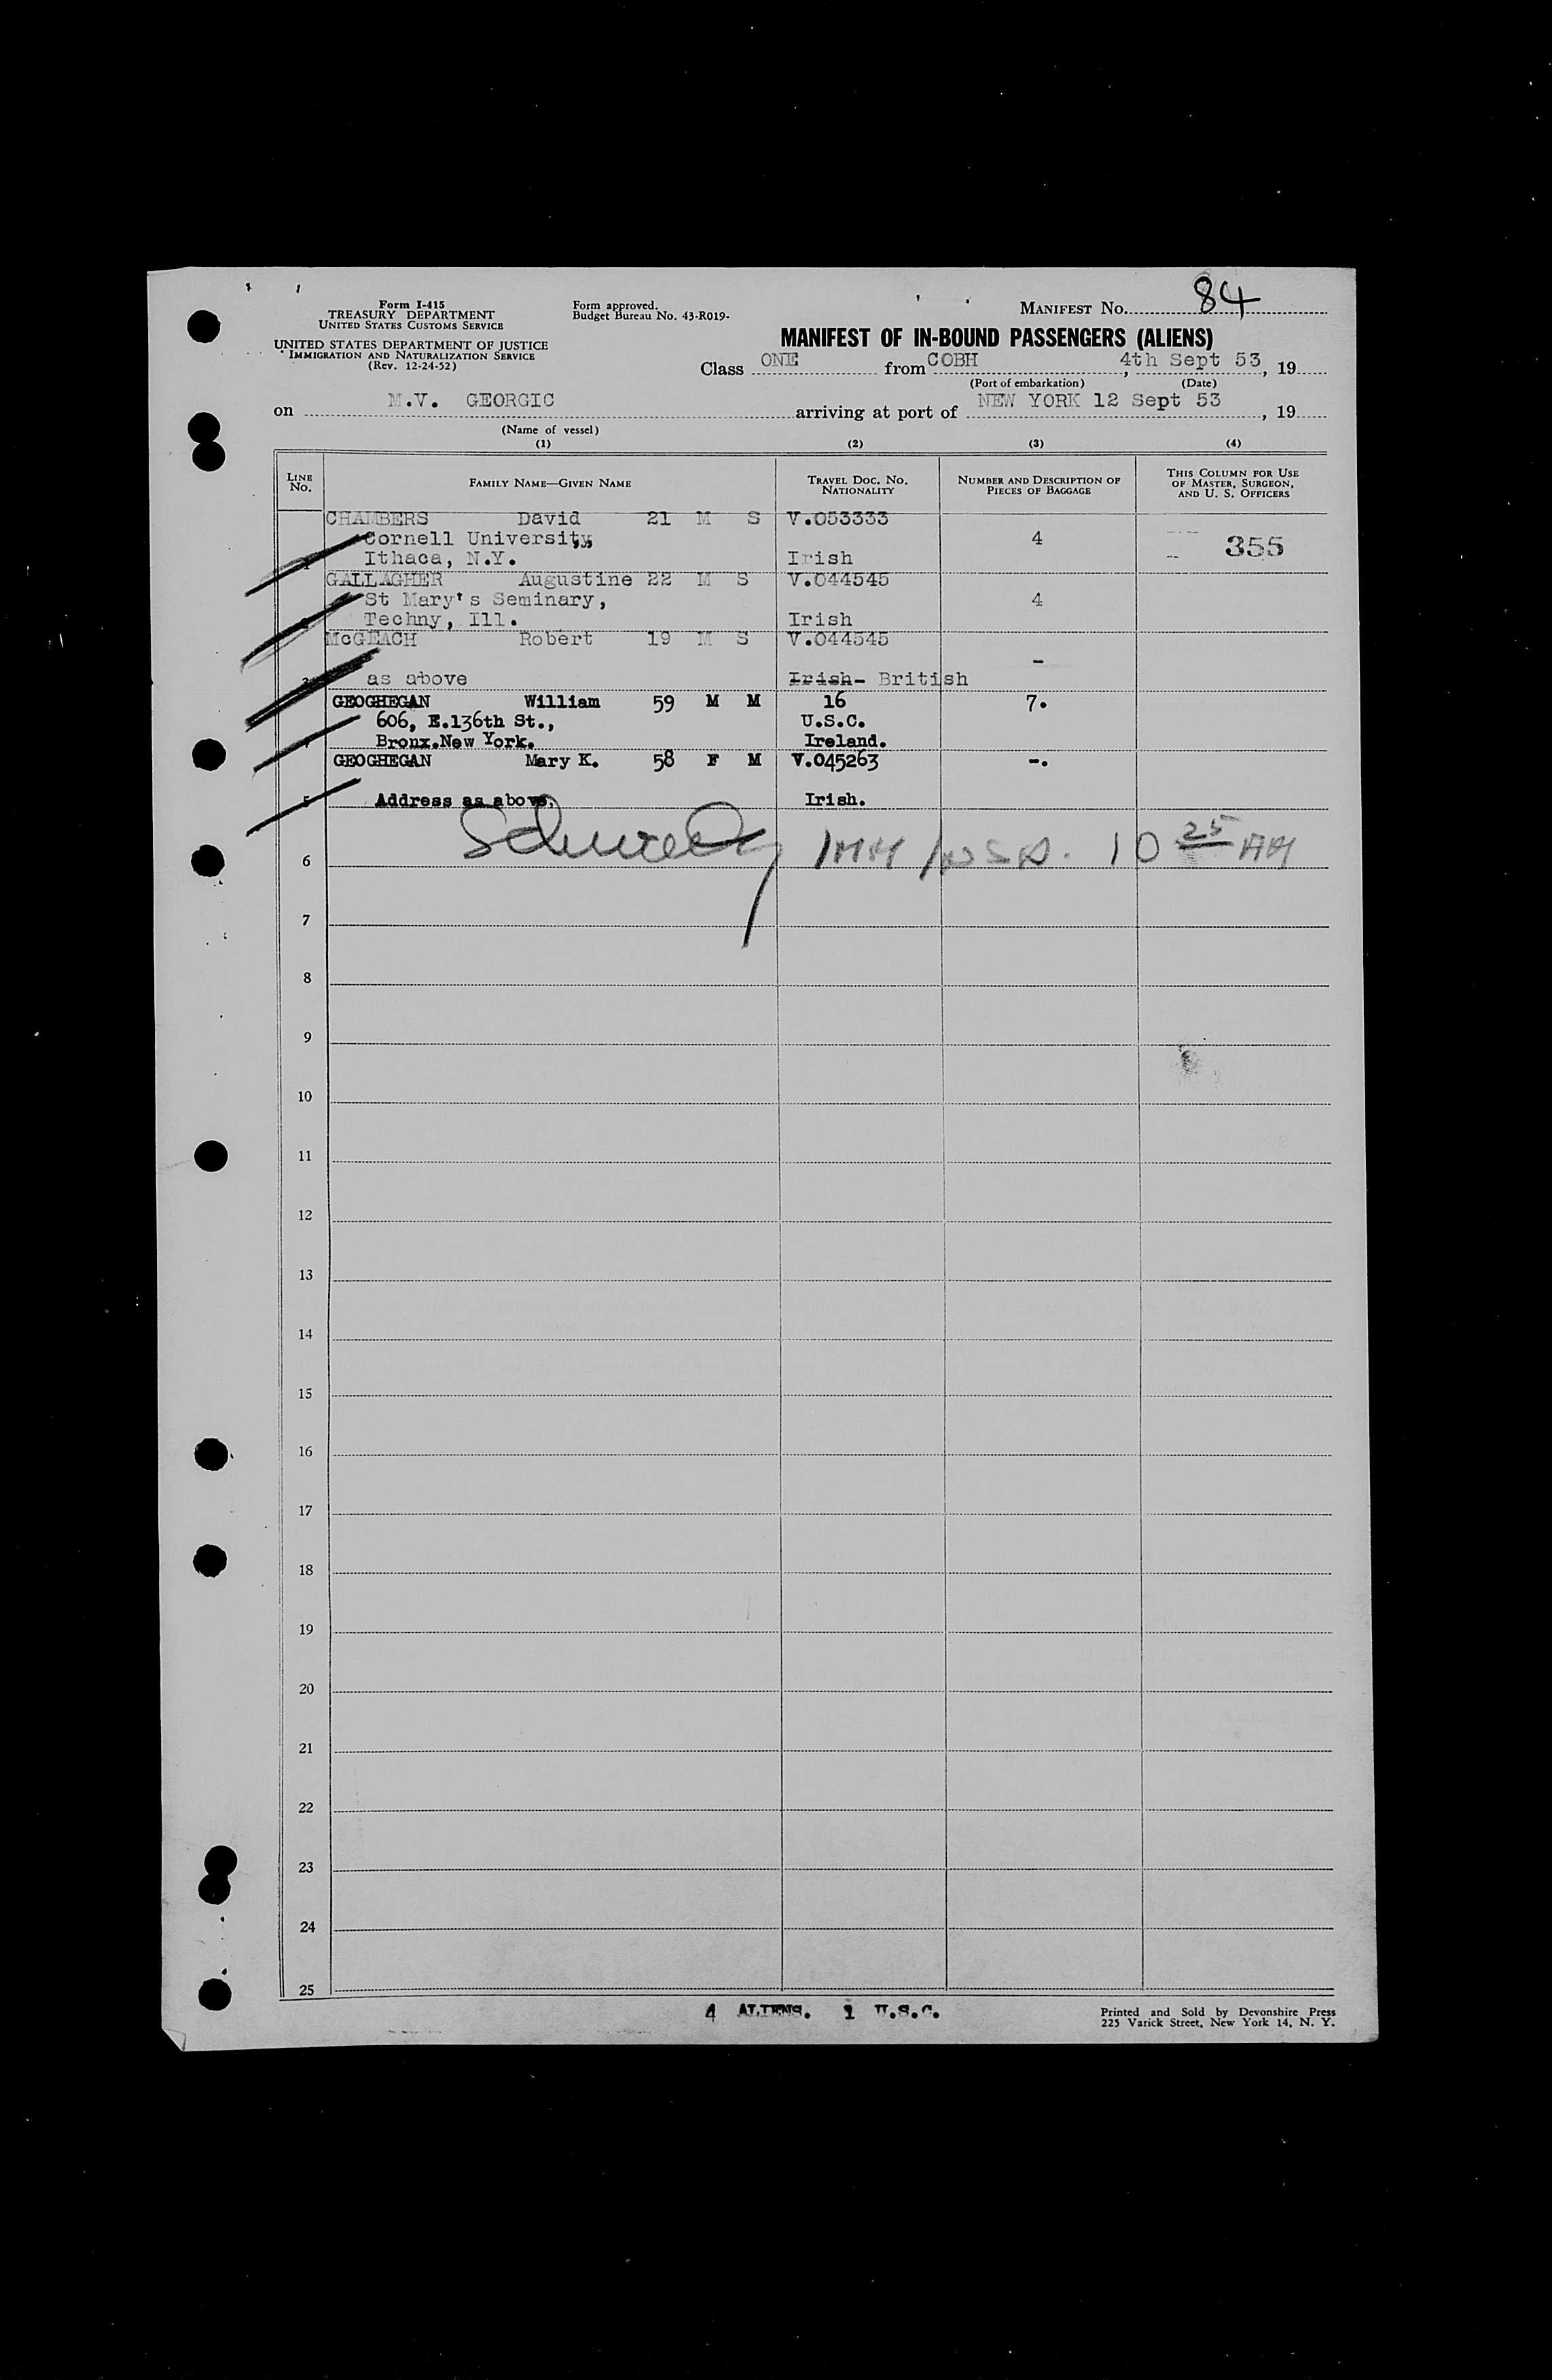 Form I-415
TREASURY DEPARTMENT
UNITED STATES CUSTOMS SERVICE
UNITED STATES DEPARTMENT OF JUSTICE
IMMIGRATION AND NATURALIZATION SERVICE
(Rev. 12-24-52)
Form approved.
Budget Bureau No. 43-R019-
MANIFEST No. 84
MANIFEST OF IN-BOUND PASSENGERS (ALIENS)
Class ONE from COBH, 4th Sept 53, 19
(Port of embarkation) (Date)
on M.V. GEORGIC arriving at port of NEW YORK 12 Sept 53, 19
(Name of vessel)
(1) (2) (3) (4)
LINE No. FAMILY NAME—GIVEN NAME TRAVEL DOC. NO. NATIONALITY NUMBER AND DESCRIPTION OF PIECES OF BAGGAGE THIS COLUMN FOR USE OF MASTER, SURGEON, AND U. S. OFFICERS
CHAMBERS David 21 M S V.053333
Cornell University, 4 355
Ithaca, N.Y. Irish
GALLAGHER Augustine 22 M S V.044545
St Mary's Seminary, 4
Techny, Ill. Irish
McGEACH Robert 19 M S V.044545
-
as above Irish- British
GEOGHEGAN William 59 M M 16 7.
606, E.136th St., U.S.C.
Bronx.New York. Ireland.
GEOGHEGAN Mary K. 58 F M V.045263 -.
5 Address as above. Irish.
10 25 AM
6
7
8
9
10
11
12
13
14
15
16
17
18
19
20
21
22
23
24
25
4 ALIENS. 1 U.S.C.
Printed and Sold by Devonshire Press
225 Varick Street, New York 14, N. Y.